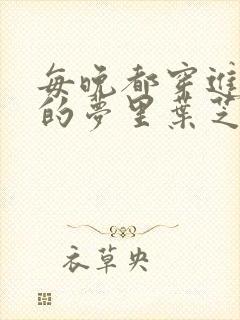 每晚都穿进
的夢里葉芝
衣草央